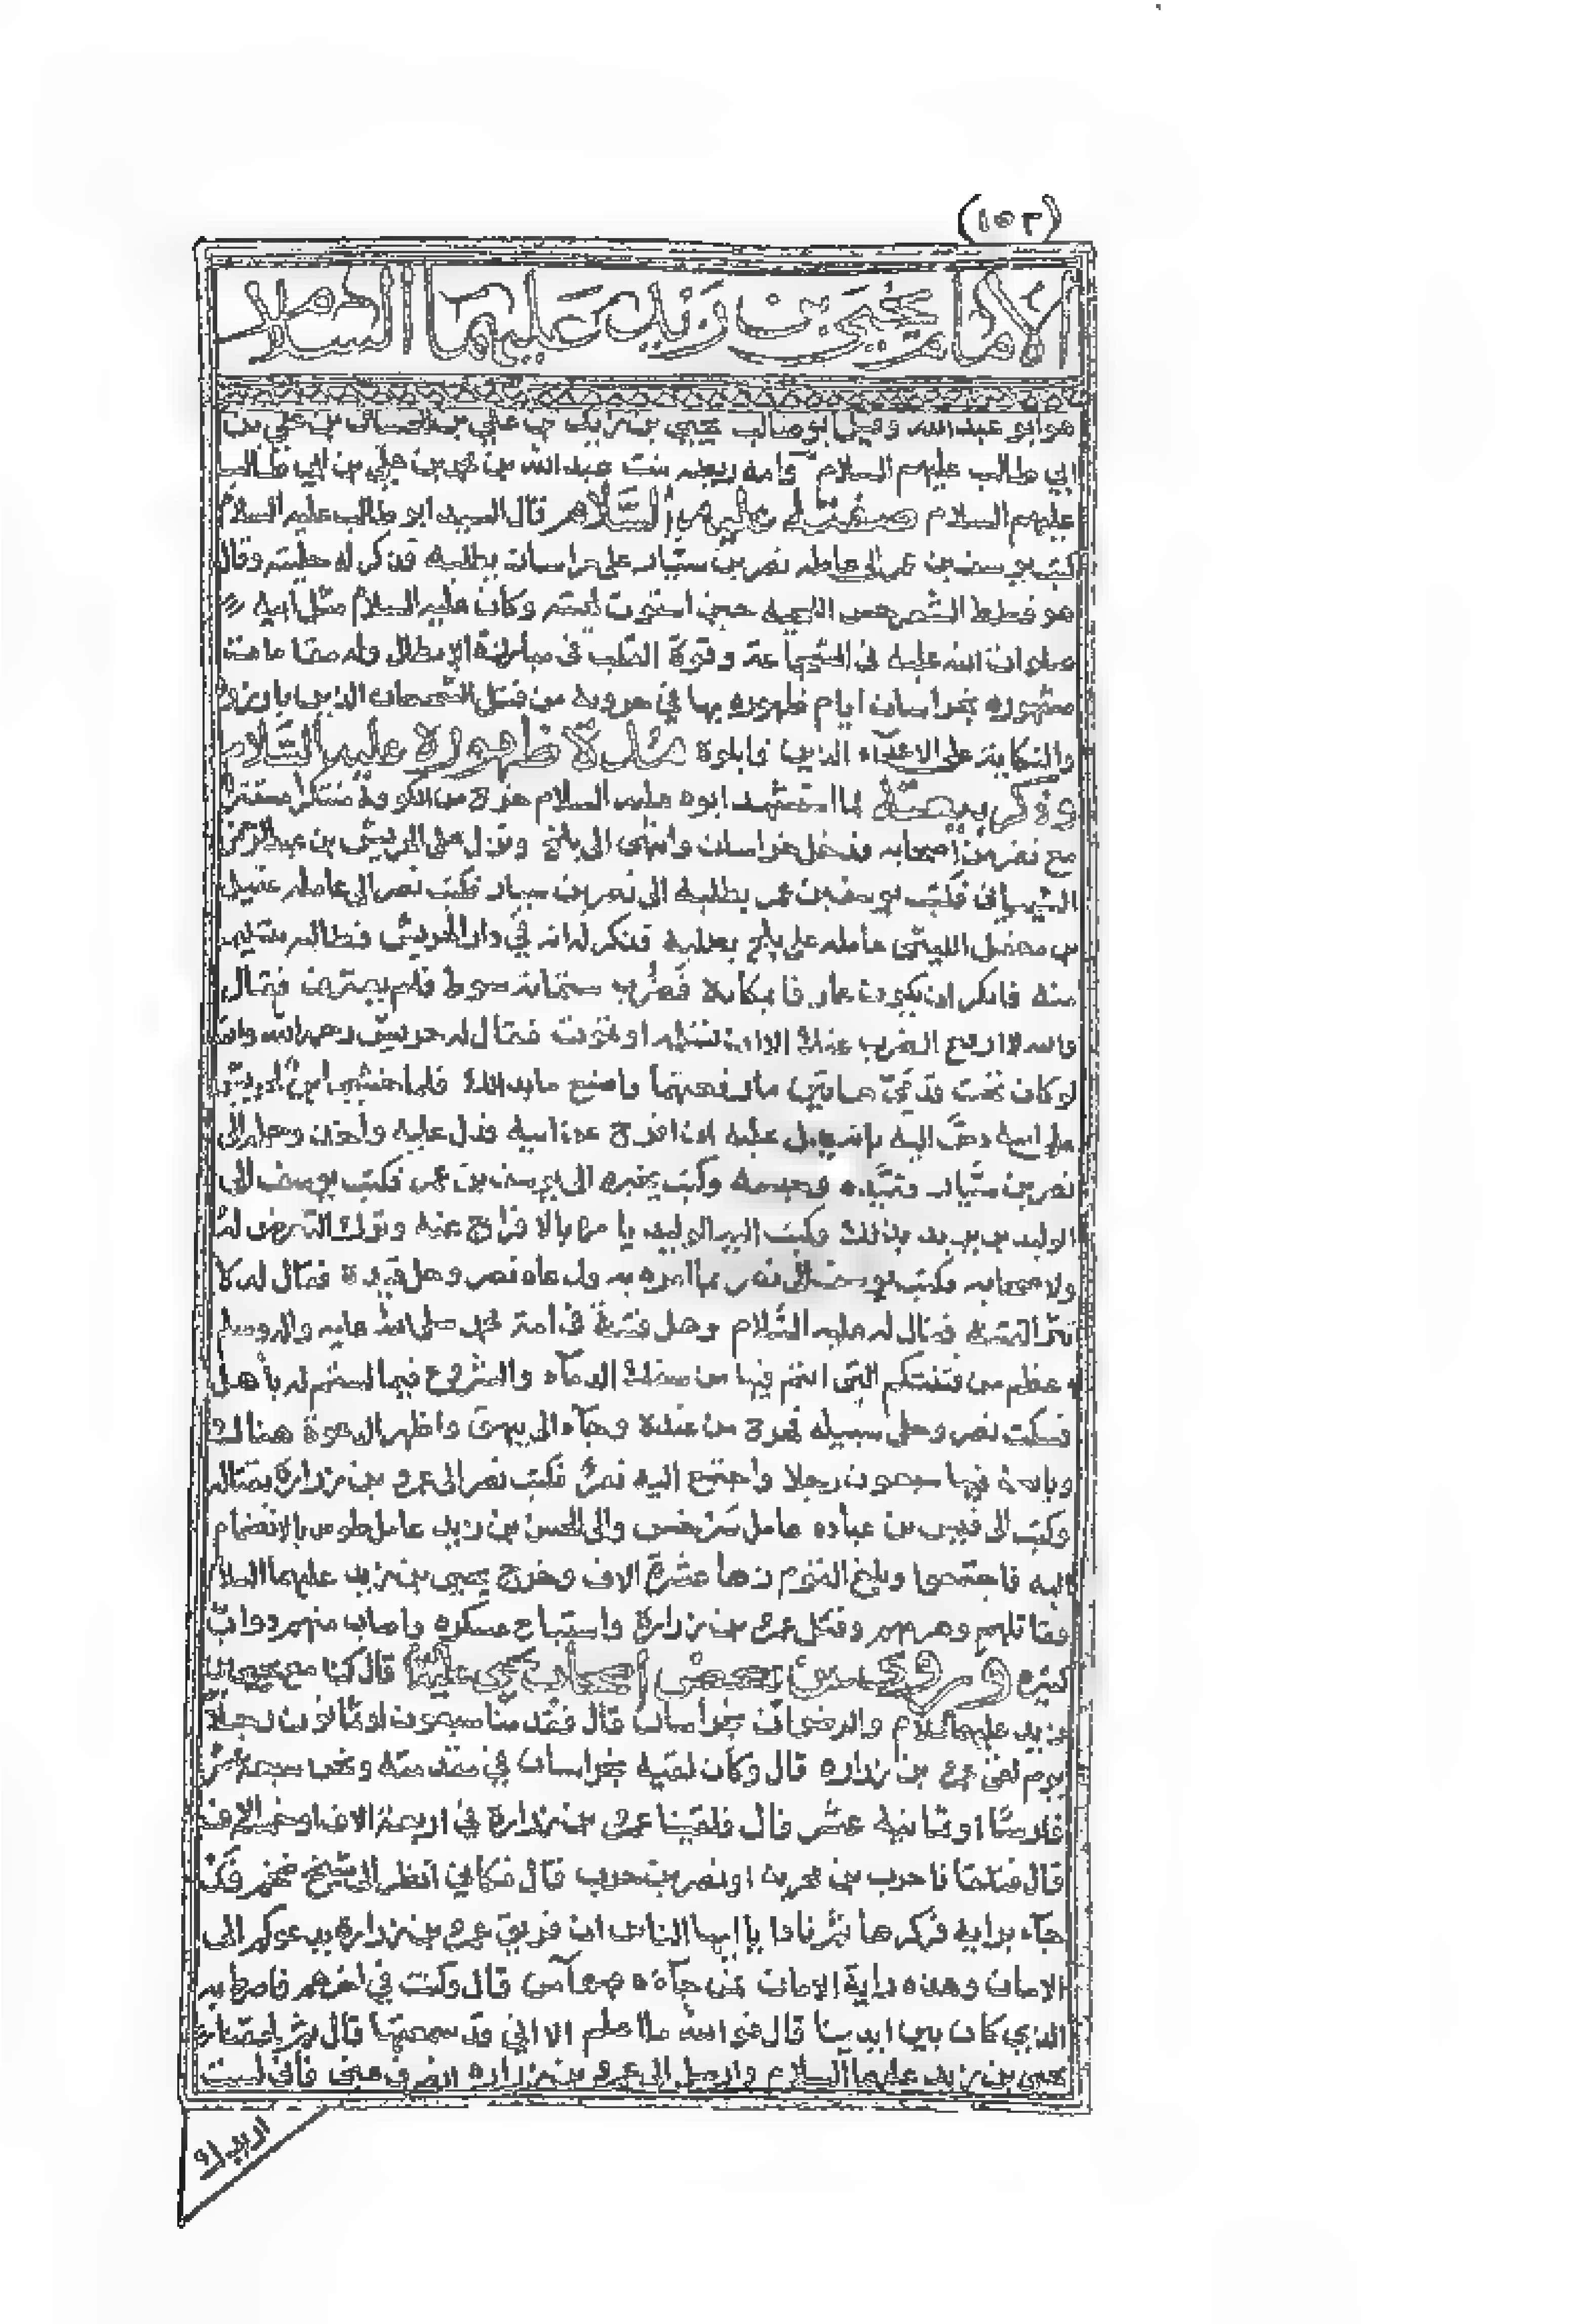 (١٥٣)
الإمام يحيى بن زيد عليهما السلام
هو ابو عبد الله وقيل ابو طالب يحيى بن زيد بن علي بن الحسين بن علي بن
ابي طالب عليهم السلام وامه ريطه بنت عبد الله بن محمد بن علي بن ابي طالب
عليهم السلام صفته عليه السلام قال السيد ابو طالب عليه السلام
كتب يوسف بن عمر الى عامله نصر بن سيار على خراسان بطلبه فذكر له حليته وقال
هو قطط الشعر حسن اللحيه حين استوت لحيته وكان عليه السلام مثل ابيه
صلوات الله عليه في الشجاعة وقوة القلب في مبارزة الابطال وله مقامات
مشهوره بخراسان ايام ظهوره بها في حروبه من قتل الشجعان الذين بارزوه
والنكاية على الاعداء الذين قابلوه مدة ظهوره عليه السلام
وذكر بيعته لما استشهد ابوه عليه السلام خرج من الكوفة متنكرا مستترا
مع نفر من اصحابه فدخل خراسان وانتهى الى بلخ ونزل على الحريش بن عبد الرحمن
الشيباني فكتب يوسف بن عمر بطلبه الى نصر بن سيار فكتب نصر الى عامله عقيل
بن معقل الليثي عامله على بلخ بطلبه فذكر له انه في دار الحريش فطالبه بتسليمه
منه فانكر ان يكون عارفا بمكانه فضربه ستمائة سوط فلم يعترف فقال
والله لا ارفع الضرب عنك الا ان تسلمه او تموت فقال له حريش رحمه الله والله
لو كان تحت قدمي هاتين ما رفعتهما واصنع ما بدا لك فلما خشي ابن الحريش
على ابيه دس اليه بانه يدل عليه ان افرج عن ابيه فدل عليه واخذ وحمل الى
نصر بن سيار فقيده وحبسه وكتب بخبره الى يوسف بن عمر فكتب يوسف الى
الوليد بن يزيد بذلك وكتب اليه الوليد يامره بالافراج عنه وترك التعرض له
ولاصحابه فكتب يوسف الى نصر بما امره به فدعاه نصر وحل قيده فقال له لا
تثر الفتنة فقال له عليه السلام وهل فتنة في امة محمد صلى الله عليه واله وسلم
اعظم من فتنتكم التي انتم فيها من سفك الدماء والشروع فيما لستم له باهل
فسكت نصر وخلى سبيله فخرج من عنده وجاء الى بيهق واظهر الدعوة هناك
وبايعه فيها سبعون رجلا واجتمع اليه نفر فكتب نصر الى عمرو بن زرارة بقتاله
وكتب الى قيس بن عباده عامل سرخس والى الحسن بن زيد عامل طوس بالانضمام
اليه فاجتمعوا وبلغ القوم زهاء عشرة الاف وخرج يحيى بن زيد عليهما السلام
وقاتلهم وهزمهم وقتل عمرو بن زرارة واستباح عسكره واصاب منهم دواب
كثيره وروي عن بعض اصحاب يحيى عليه السلام قال كنا مع يحيى بن
زيد عليهما السلام والرضوان بخراسان قال ففقد منا سبعون او ثمانون رجلا
يوم لقي عمرو بن زراره قال وكان لقيه بخراسان في مقدمته ونحن سبعة عشر
فارسا او ثمانيه عشر قال فلقينا عمرو بن زرارة في اربعة الاف او خمسة الاف
قال فتقدمنا حرب بن محربه او نصر بن حرب قال فكاني انظر الى شيخ ضخم قد
جاء براية فركزها ثم نادا يا ايها الناس ان فريق عمرو بن زرارة يدعوكم الى
الامان وهذه راية الامان فمن جاءه فهو آمن قال وكنت في اخرهم
الذي كان بين ايدينا قال فو الله ما اعلم الا اني قد سمعتها قال
يحيى بن زيد عليهما السلام وارسل الى عمرو بن زراره انصرف عني فاني لست
اريدك